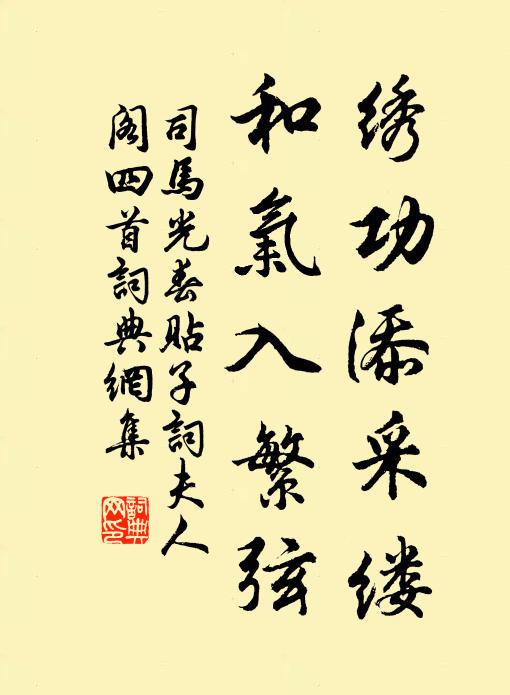 绣功添采缕
和氣入繁弦
司馬光春貼子詞夫人
阁四首詞典網集
詞典網印